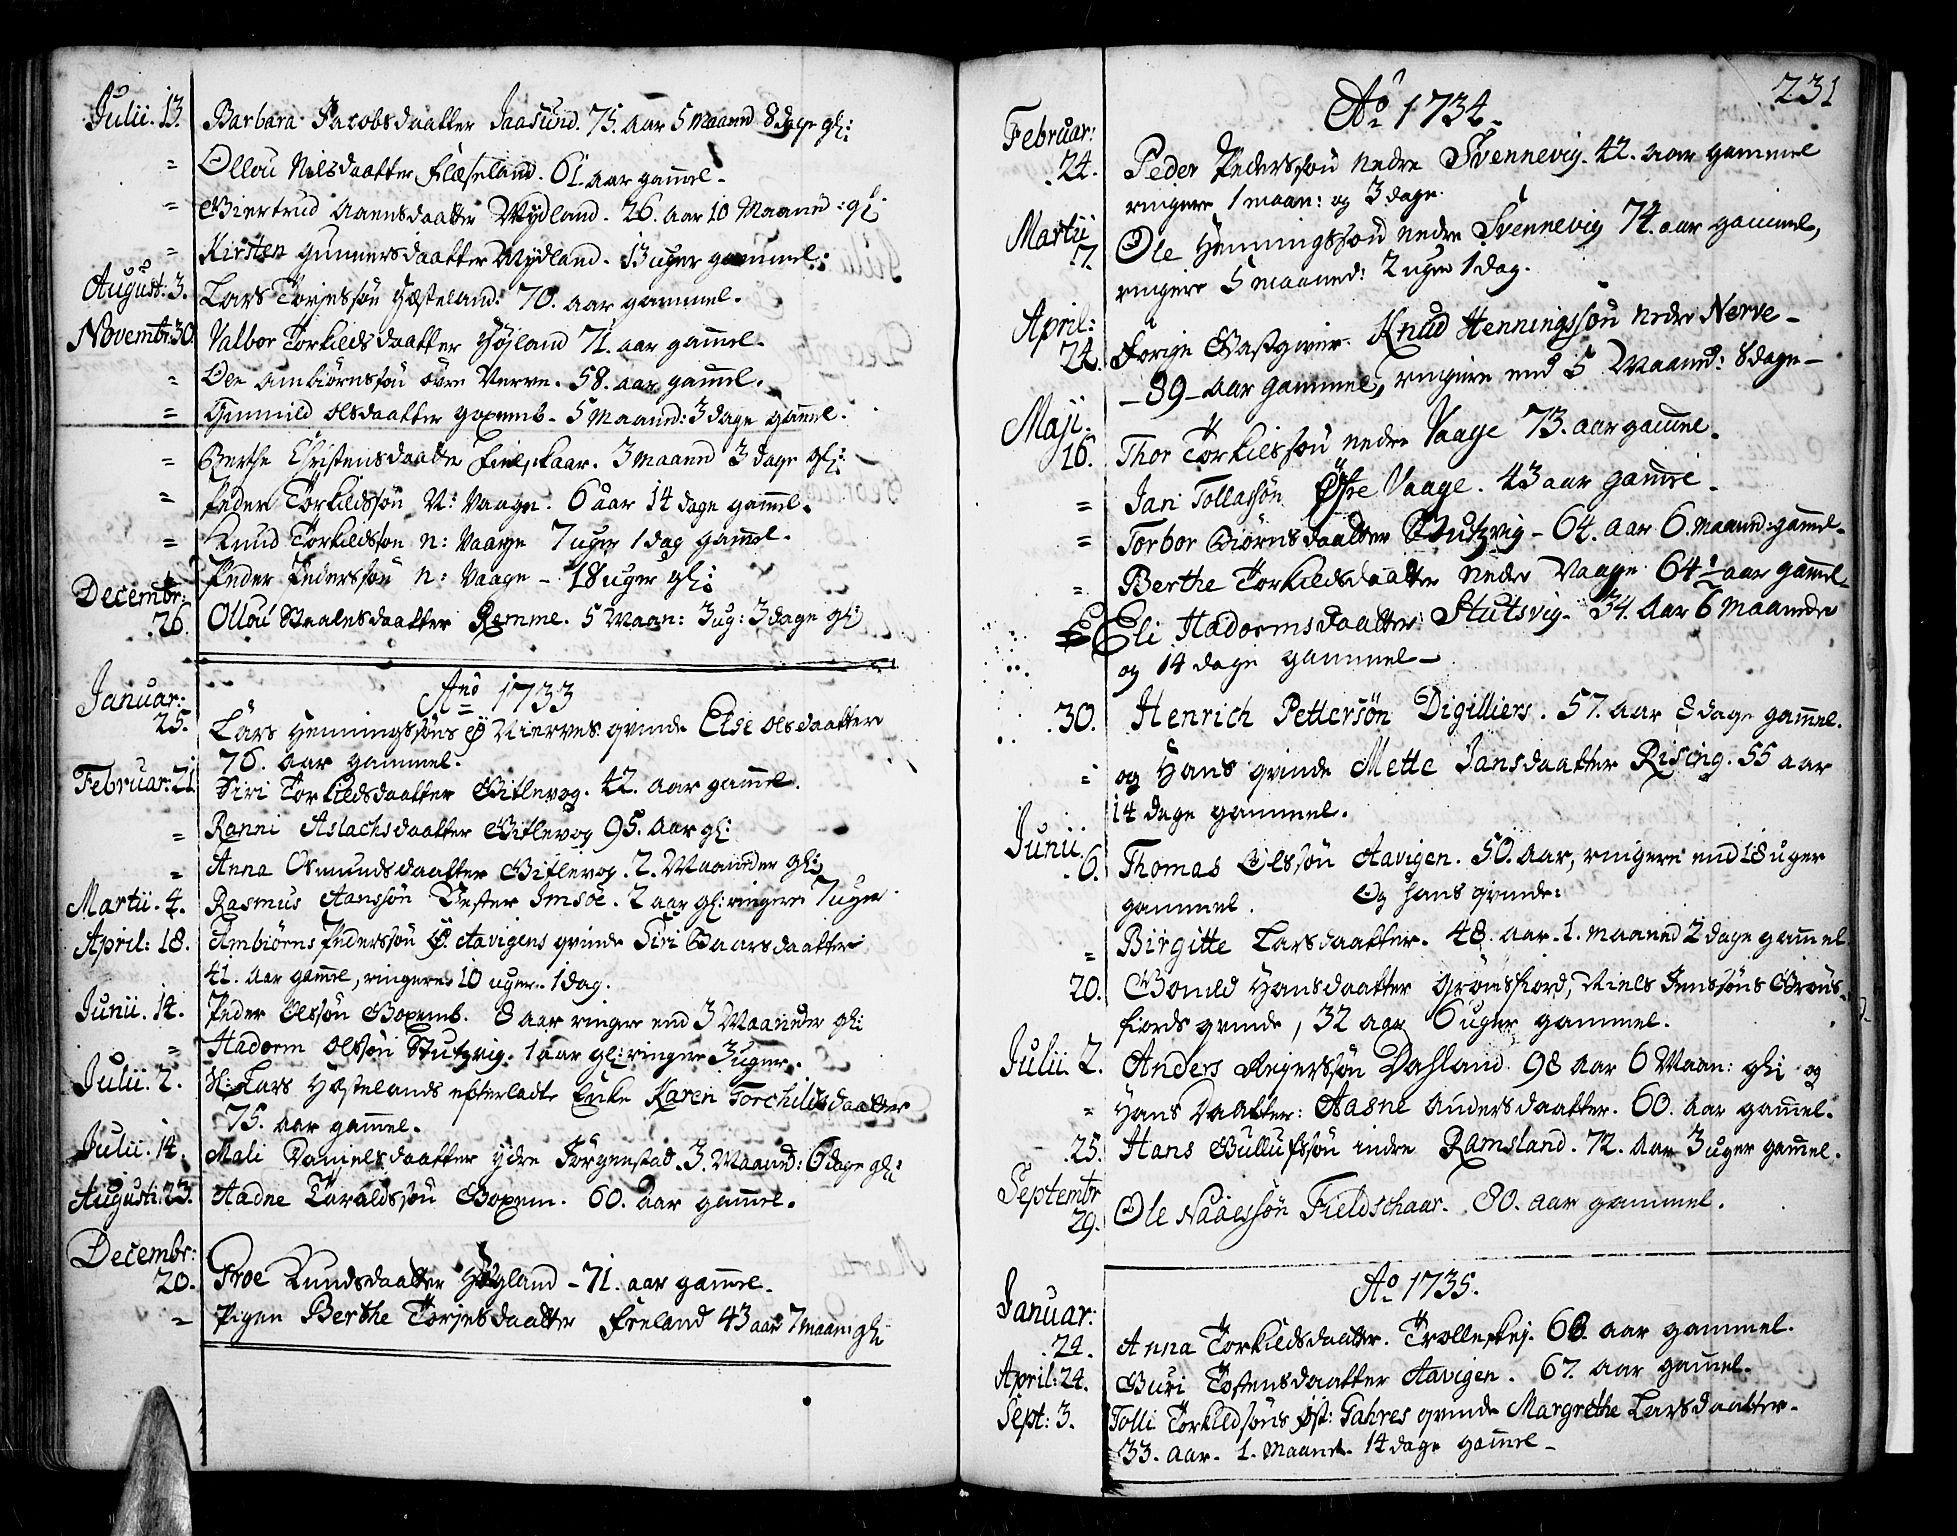 Julii. 13. Barbara Jacobsdaatter Jaasund. 75. aar 5 maaned 8 dage gl:
= Ollou Nilsdaatter Flæseland. 61. aar gamel.
= Giertrud Aanensdaatter Mydland. 26. aar 10 Maaned: gl:
= Kirsten Gunnersdaatter Mydland. 13 uger gammel:
August: 3. Lars Torjessøn Hæsteland. 70. aar gammel.
Novembr: 30. Valbor Torkieldsdaatter Højland 71. aar gamel.
= Ole Ambiørnssøn övre Nerve. 58. aar gamel.
= Gunnild Olsdaatter Goxemb. 5 Maaned: 3 dage gamel.
= Berthe Christensdaatter Fielskaar. 3 maaned 3 dage gl:
= Peder Torkieldssøn N: Vaage. 6 aar 14 dage gamel.
= Knud Torkieldssøn n: Vaage 7 uger 1 dag gamel.
Peder Pederssøn n: Vaage - 18 uger gl:
Decembr:
26. Ollou Staalesdaatter Remme. 5 Maan: 3 ug: 3 dage gl:
Ano 1733
Januar:
25. Lars Henningssøns Ø Nerves qvinde Else Olsdaatter
76. aar gammel.
Februar: 21. Siri Torkieldsdaatter Gitlevog. 42. aar gamel.
= Ranni Aslachsdaatter Gitlevog 95. aar gl:
= Anna Osmundsdaatter Gitlevog. 2. Maaneder gl:
Martii. 4. Rasmus Aanssøn Vester Imsöe. 2 aar gl: ringere 7 uger
April: 18. Ambiørns Pederssøn Ø. Aavigens qvinde Siri Baarsdaatter
41. aar gamel, ringere 10 uger. 1 dag.
Junii. 14. Peder Olssøn Goxemb. 8 aar ringere end 3 Maaneder gl:
= Hadorm Olssøn Stutzvig. 1 aar gl: ringere 3 uger.
Julii. 2. Sl: Lars Hæstelands efterladte Enke Karen Torchildsdaatter
75. aar gamel.
Julii. 14. Mali Danielsdaatter ydre Jørgenstad. 3. Maaned: 6 dage gl:
Augusti: 23. Aadne Taraldssøn Goxem. 60. aar gamel.
Decembr:
20. Groe Knudsdaatter Høyland - 71. aar gamel.
= Pigen Berthe Torjesdaatter Freland 43 aar 7 maan: gl:
231
Ao 1734.
Februar:
24. Peder Pederssøn nedre Svennevig. 42. aar gammel
ringere 1 maan: og 3 dage.
Martii
7. Ole Henningssøn nedre Svennevig 74. aar gammel,
ringere 5 maaned: 2 uger 1 dag.
April:
24. Forige Gastgiver. Knud Henningssøn nedre Nerve -
- 89 - aar gammel, ringere end 5 Maaned: 8 dage -
Maji.
16. Thor Torkilssøn nedre Vaage 73. aar gamel.
= Jan Tollassøn Øfre Vaage. 43 aar gamel.
= Torbor Biørnsdaatter Stutzvig - 64. aar 6. maaned: gamel.
= Berthe Torkieldsdaatter nedre Vaage 64½ aar gamel
Eli Hadormsdaatter: Stutsvig. 34. aar 6 maaneder
og 14 dage gammel -
30. Henrich Pettersøn Digilliers. 57. aar 8 dage gamel.
= og Hans qvinde Mette Jansdaatter Rising. 55 aar
14 dage gammel.
Junii.
6. Thomas Olssøn Aavigen. 50. aar, ringere end 18 uger
gammel. Og hans qvinde:
= Birgitte Larsdaatter. 48. aar. 1. maaned 2 dage gamel
20. Gomeld Hansdaatter Grönsfiord, Niels Jenssøns Grönsfiords qvinde, 32 aar 6 uger gammel.
Julii 2. Anders Rejerssøn Dahland. 98 aar 6 Maan: gl: og
= Hans Daatter: Aasne Andersdaatter. 60. aar gamel.
25. Hans Gullufssøn indre Ramsland. 72. aar 3 uger gamel.
Septembr
29. Ole Naaelssøn Fieldschaar. 80. aar gammel.
Ao 1735.
Januar:
24. Anna Torkieldsdaatter. Trolleskej. 68. aar gammel.
April: 24. Guri Tostensdaatter Aavigen. 67. aar gamel.
Sept: 3. Tolli Torkieldsøns Øst: Jahres qvinde Margrethe Larsdaatter.
33. aar. 1. maaned. 14 dage gamel -